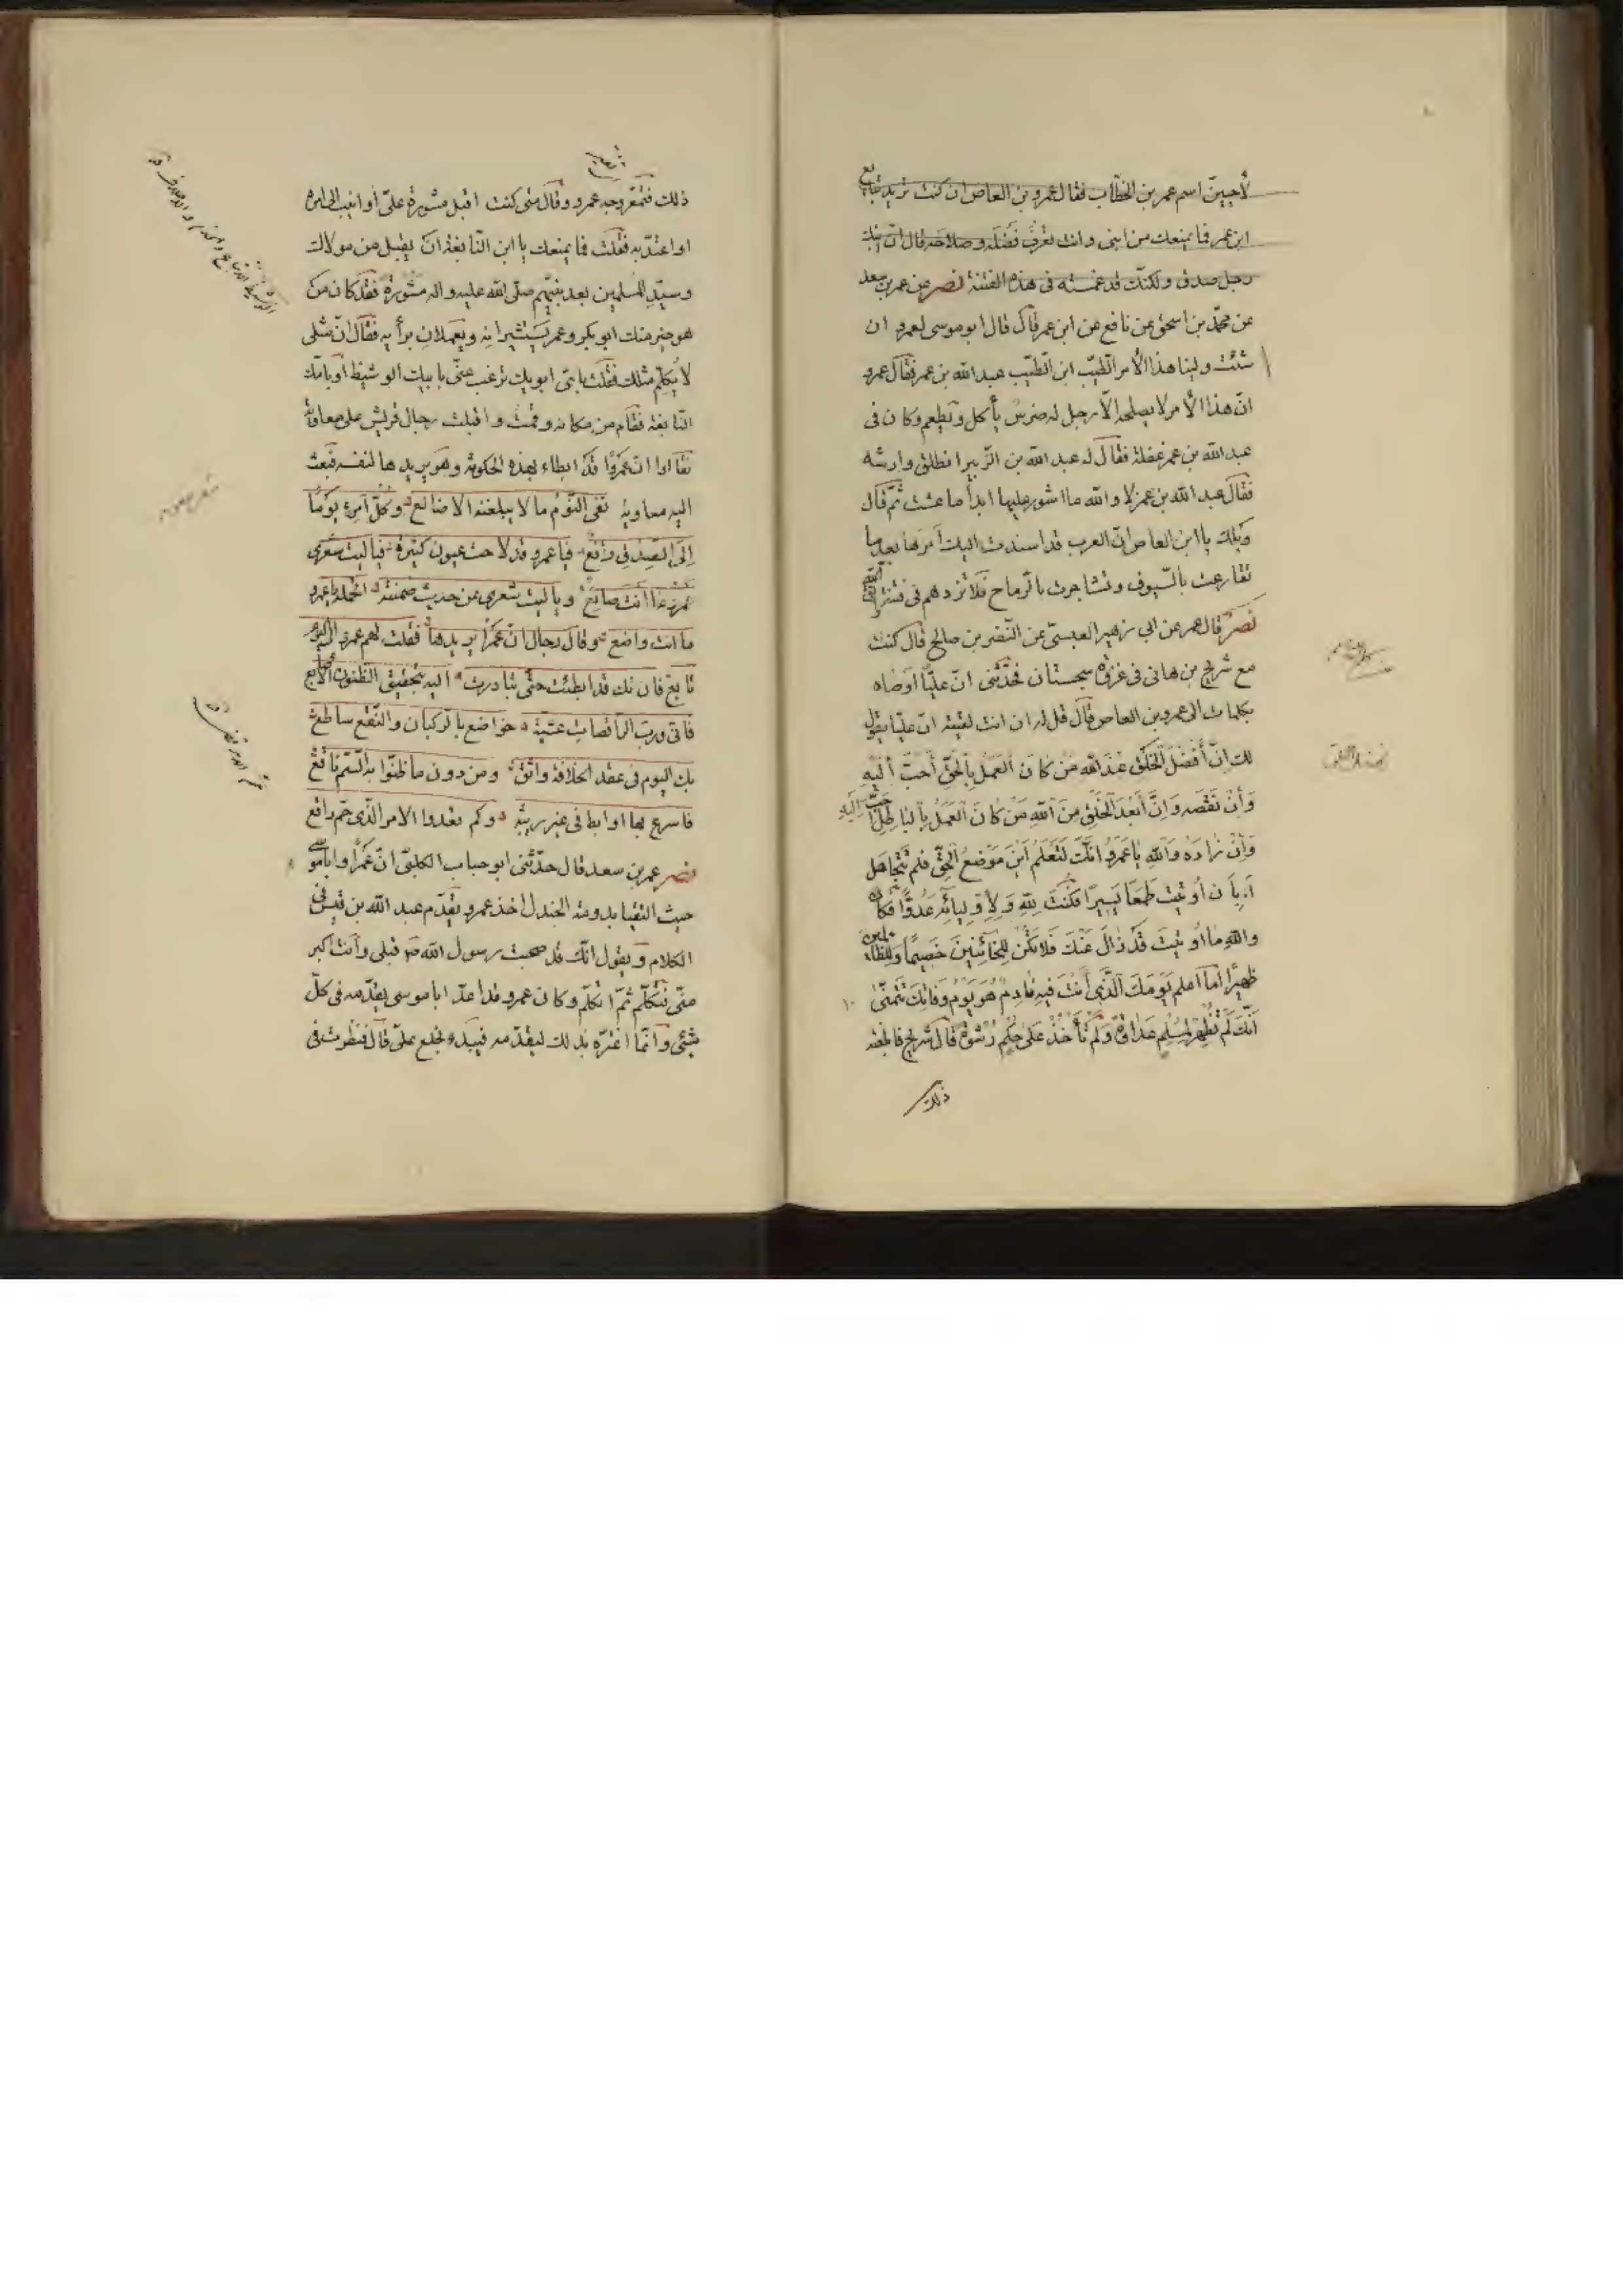 لأحيينّ اسم عمر بن الخطّاب فقال عمرو بن العاص ان كنت تريد تبايع
ابن عمر فما يمنعك من ابنى وانت تعرف فضله وصلاحه قال انّ ابنك
رجل صدق ولكنّك قد غمسته فى هذه الفتنة نصر عن عمر بن سعد
عن محمّد بن اسحق عن نافع عن ابن عمر قال قال ابو موسى لعمرو ان
شئت ولينا هذا الأمر الطّيّب ابن الطّيّب عبد الله بن عمر فقال عمرو
انّ هذا الأمر لا يصلحه الّا رجل له ضرس يأكل ويطعم وكان فى
عبد الله بن عمر غفلة فقال له عبد الله بن الزّبير انطلق وارشه
فقال عبد الله بن عمر لا والله ما اشور عليها ابدا ما عشت ثمّ قال
ويلك يا ابن العاص انّ العرب قد اسندت اليك امرها بعد ما
تقارعت بالسّيوف وتشاجرت بالرّماح فلا تردهم فى فتنة
نصر قال عمر عن ابى زهير العبسىّ عن النّضر بن صالح قال كنت
مع شريح بن هانى فى غزوة سجستان فحدّثنى انّ عليّا اوصاه
بكلمات الى عمرو بن العاص قال قل له ان انت لقيته انّ عليّا يقول
لك انّ أفضل الخلق عند الله من كان العمل بالحقّ أحبّ اليه
وأن نقصه وانّ أبعد الخلق من الله من كان العمل بالباطل احبّ اليه
وان زاده والله يا عمرو انّك لتعلم أين موضع الحقّ فلم تتجاهل
أ بأن أوتيت طمعا يسيرا فكنت لله ولأوليائه عدوّا فكان
والله ما اوتيت قد زال عنك فلا تكن للخائنين خصيما وللظالمين
ظهيرا اما اعلم يومك الّذى أنت فيه نادم هو يوم وفاتك تتمنّى
أنّك لم تظهر لمسلم عداوة ولم تأخذ على حكم رشوة قال شريح فابلغته
ذلك
ذلك فتمعّر وجه عمرو وقال متى كنت اقبل مشورة علىّ أو انيب الى امره
او اعتدّ به فقلت فما يمنعك يا ابن النّابغة ان يقبل من مولاك
وسيّد المسلمين بعد نبيّهم صلّى الله عليه واله مشورة فقد كان من
هو خير منك ابو بكر وعمر يستشيرانه ويعملان برأيه فقال انّ مثلى
لا يكلّم مثلك فقلت باىّ ابويك ترغب عنّى بابيك الوشيظ أو بامّك
النّابغة فقام من مكانه وقمت واقبلت رجال قريش على معاوية
فقالوا انّ عمروا قد ابطاء بهذه الحكومة وهو يريدها لنفسه فبعث
اليه معاوية نفى النّوم ما لا يبلغنه الاضالع وكلّ امرء يوما
الى الصّدق راجع فيا عمرو قد لاحت عيون كثيرة فيا ليت شعرى
عمرو ما انت صانع ويا ليت شعرى عن حديث ضمنته اتحمله يا عمرو
ما انت واضع وقال رجال انّ عمرا يريدها فقلت لهم عمرو لى اليوم
تابع فان تك قد ابطئت حتّى تبادرت اليه بتحقيق الظنون الأصابع
فانى وربّ الرّاقصات عشيّة خواضع بالرّكبان والنّقع ساطع
بك اليوم فى عقد الخلافة واثق ومن دون ما ظنّوا به السّمّ ناقع
فاسرع بها او ابط فى غير ريثة وكم تعدوا الامر الّذى حمّ واقع
نصر عمر بن سعد قال حدّثنى ابو جناب الكلبىّ انّ عمرا وابا موسى
حيث التقيا بدومة الجندل اخذ عمرو يقدّم عبد الله بن قيس فى
الكلام ويقول انّك قد صحبت رسول الله ص قبلى وأنت أكبر
منّى فتكلّم ثمّ اتكلّم وكان عمرو قد اعدّ ابا موسى يقدّمه فى كلّ
شيئ وانّما اغترّه بذلك ليقدّمه فيبدء بخلع علىّ قال فنظرت فى
شعر معوية